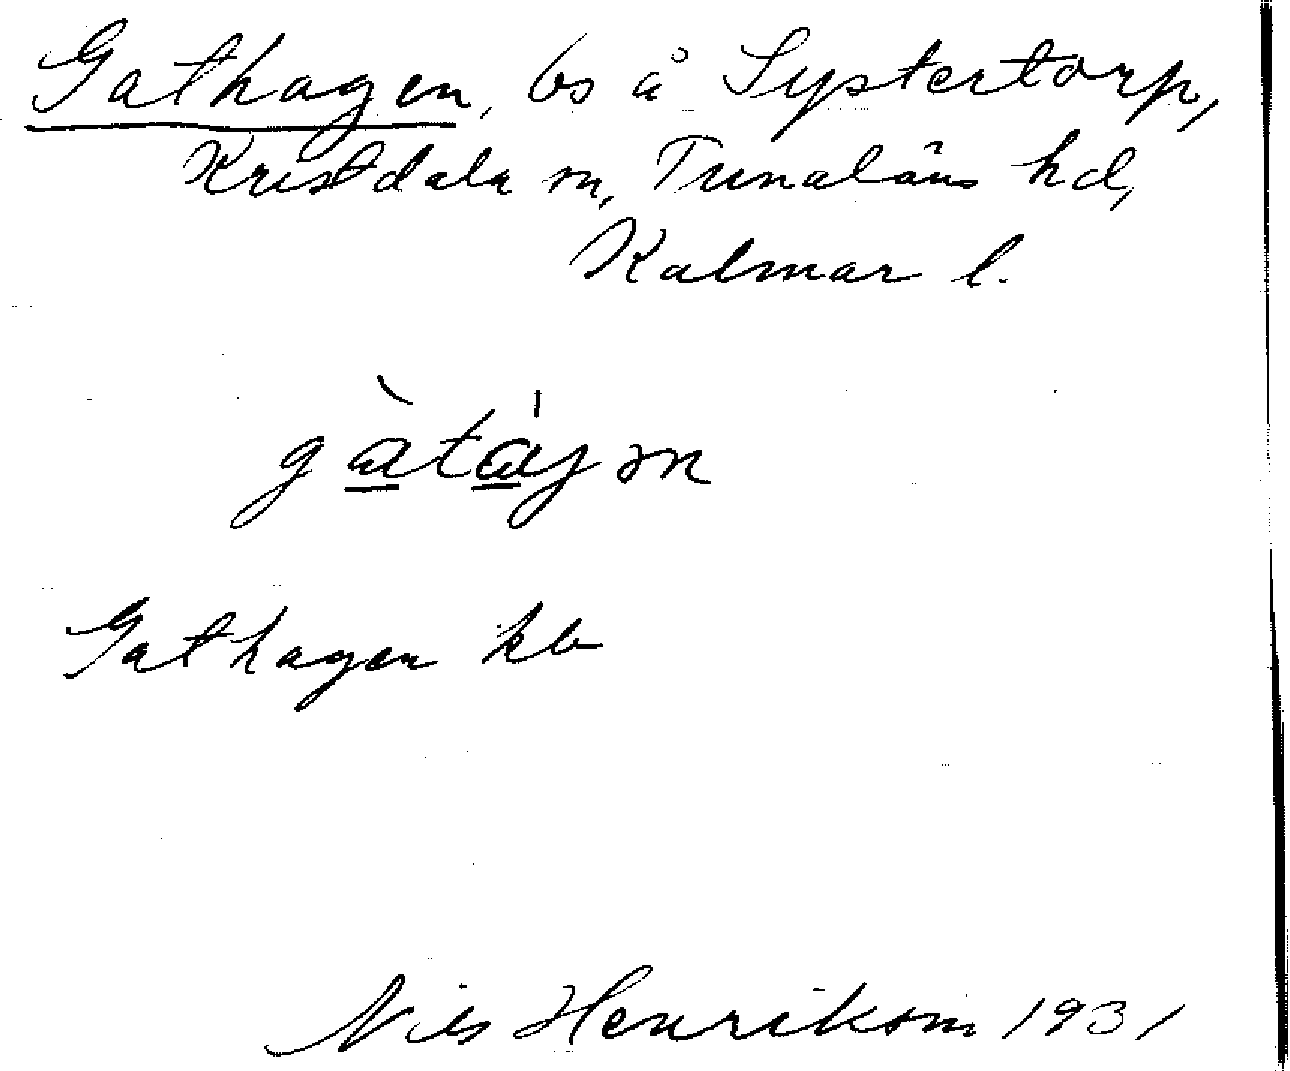 Gathagen, bs å Systertorp,
Kristdala sn, Tunaläns hd,
Kalmar l.
gàtájən
Gathagen kb
Nils Henrikson 1931